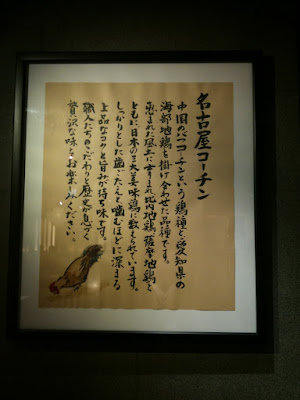 名古屋コーチン
中国のバフコーチンという鶏種と、愛知県の
海部地鶏を掛け合わせた品種です。
恵まれた風土に育まれ、比内地鶏、薩摩地鶏と
ともに日本の三大美味鶏に数えられています。
しっかりとした歯ごたえと噛むほどに深まる
上品なコクと旨みが持ち味です。
職人たちのこだわりと歴史が息づく
贅沢な味をお楽しみください。